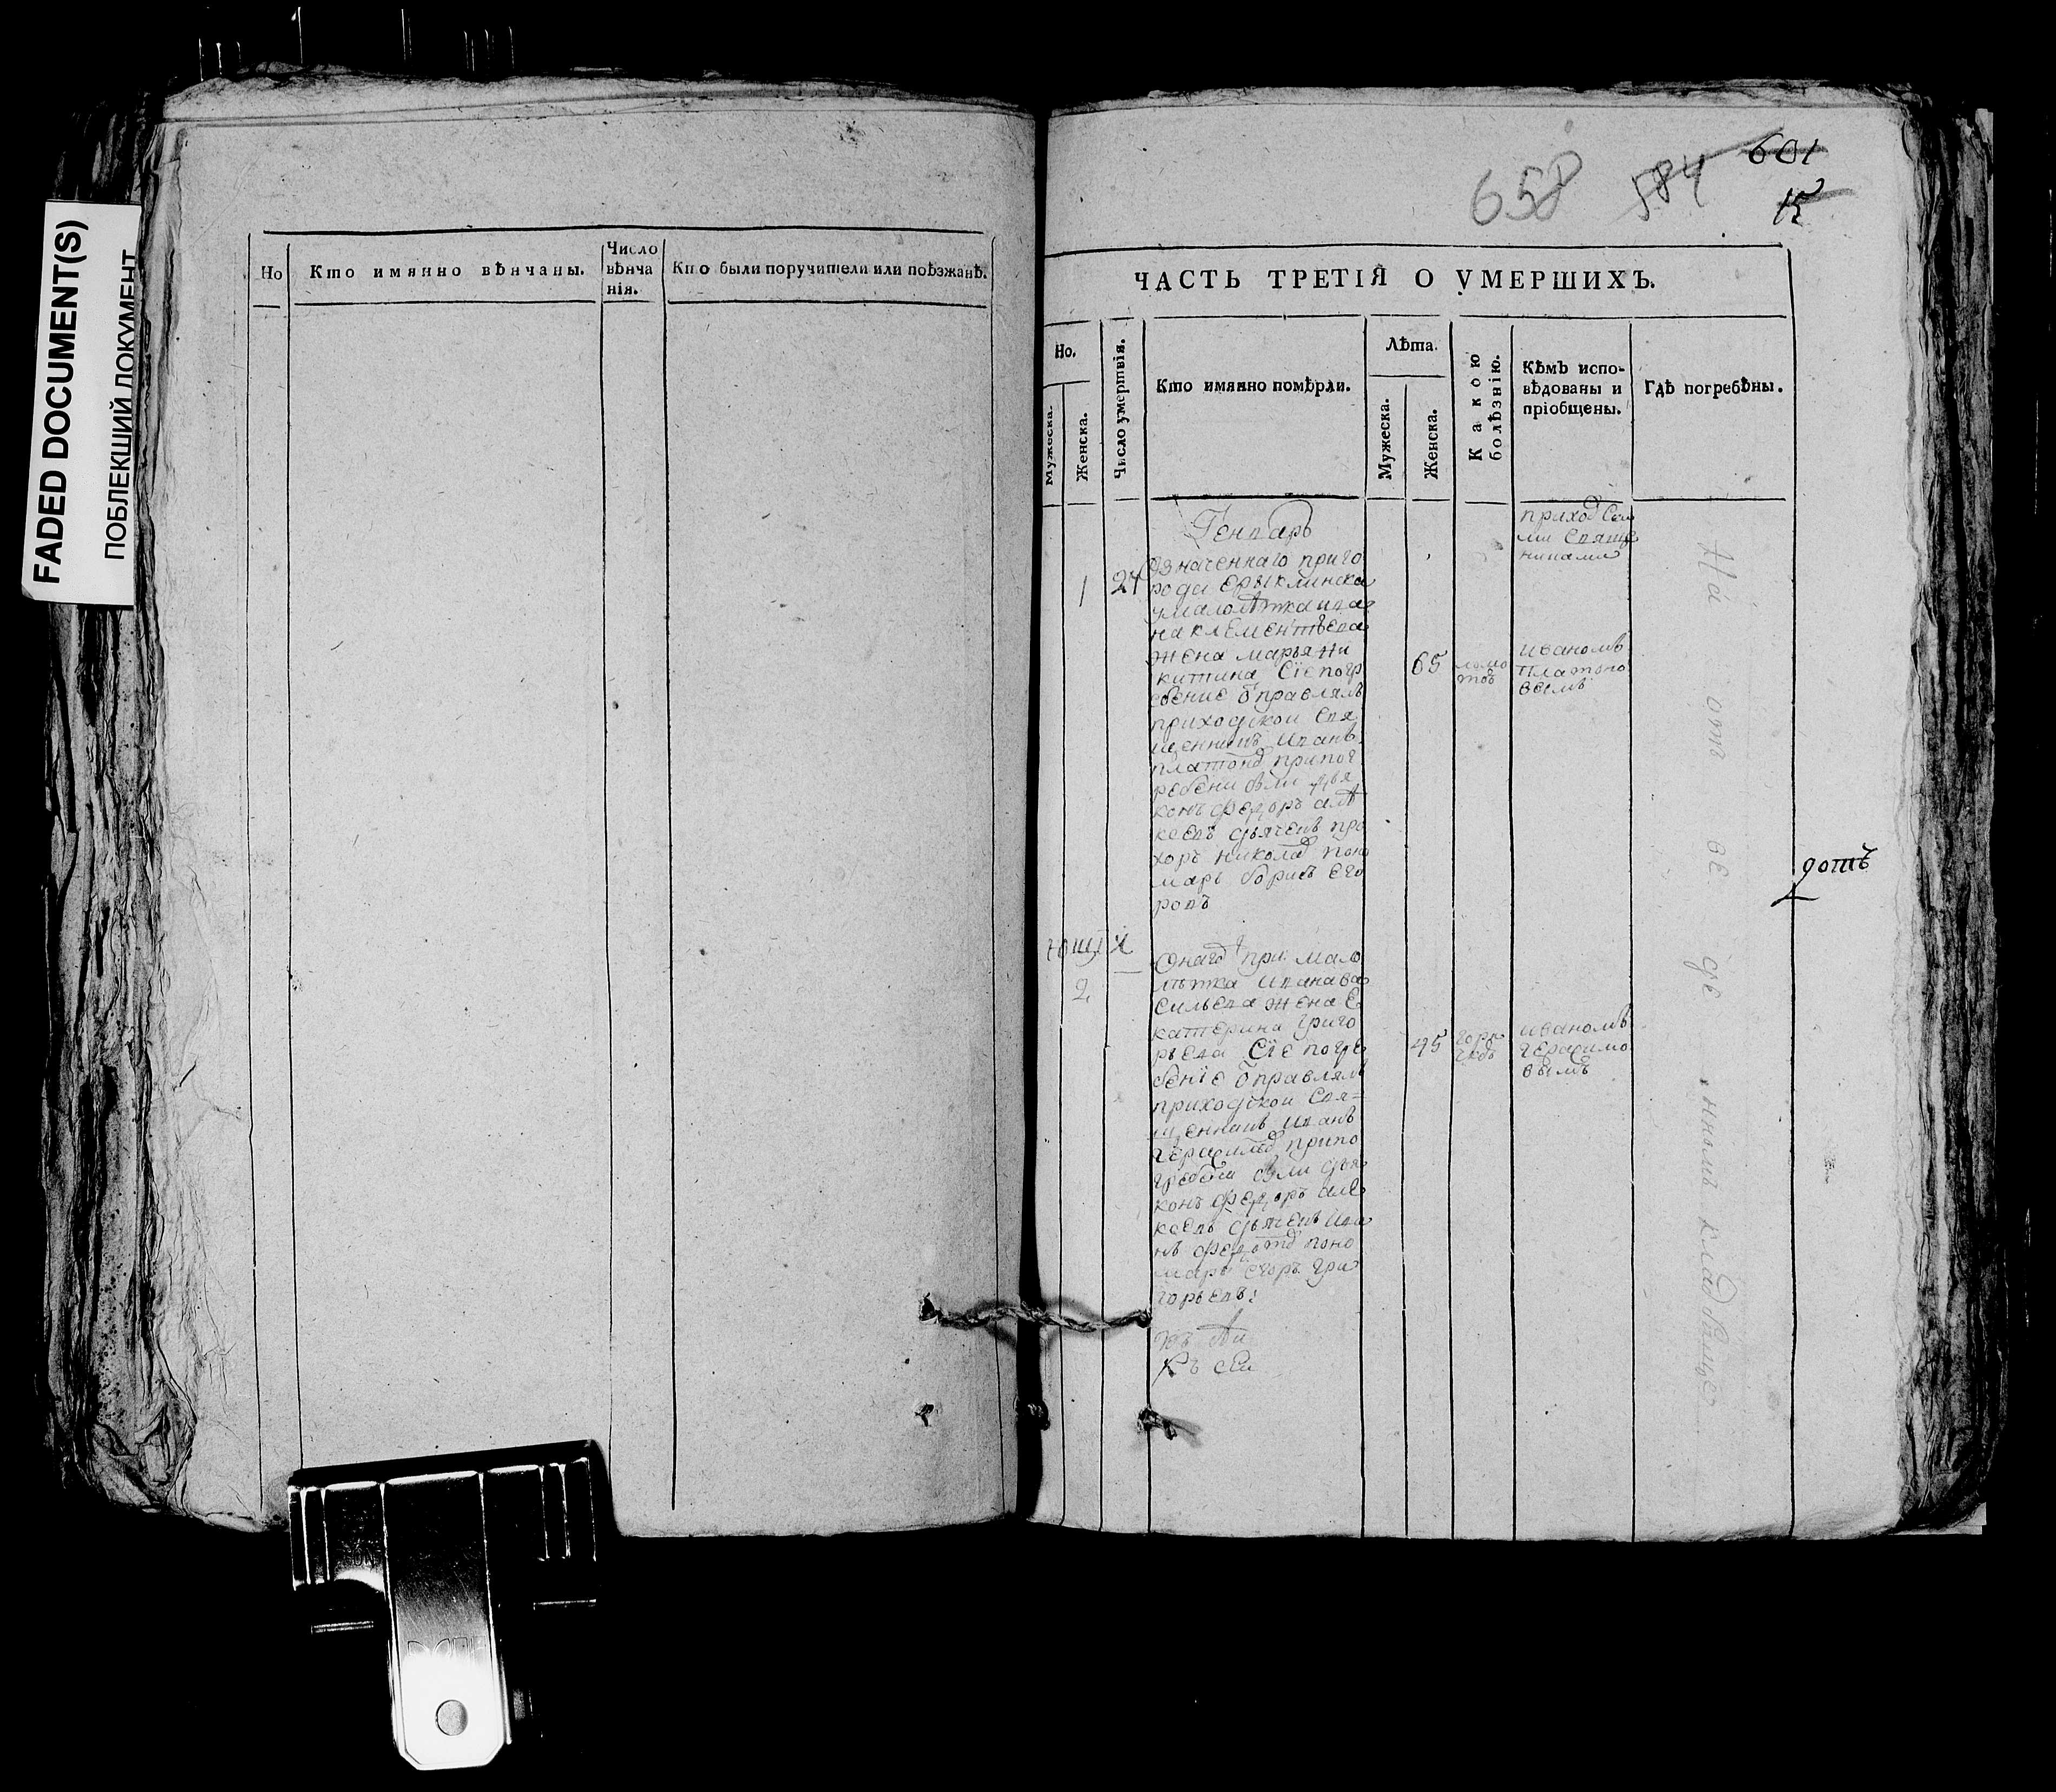 FADED DOCUMENT(S)
ПОБЛЕКШИЙ ДОКУМЕНТ
Но
Кто имянно вѣнчаны.
Число
вѣнча
нія.
Кто были поручители или поѣзжанѣ.
601
658 584
15
ЧАСТЬ ТРЕТІЯ О УМЕРШИХЪ.
Но.
Мужеска.
Женска.
Число умертвія.
Кто имянно помѣрли.
Лѣта.
Мужеска.
Женска.
Какою
болѣзнію.
Кѣмъ испо-
вѣдованы и
пріобщены.
Гдѣ погребѣны.
Генварь
1
27
означеннаго приго
рода Ерыклинска
умалолѣтка ива
на клементьева
жена марья ни
китина Сїе погр
ебение ѿправлялъ
приходской свя
щенникъ иванъ
платонов при пог
ребени были дья
конъ федоръ алѣ
ксеевъ дьячекъ про
хоръ никола поно
марь борисъ его
ровъ
65
ломо
тою
приход
ми свяще
никами
иваномъ
платоно
вымъ
2
Онаго при: мало
лѣтка ивана ва
сильева жена Е
катерина григо
рьева Сїе погре
бенїе ѿправлялъ
приходской свя=
щенникъ иванъ
герасимов при по
гребени были дья
конъ федоръ але
ксеевъ дьячекъ ива
нъ федотов поно
марь егоръ гри
горьевъ:
45
горя
чкою
иваномъ
герасимо
вымъ
На отве де нномъ кладбище